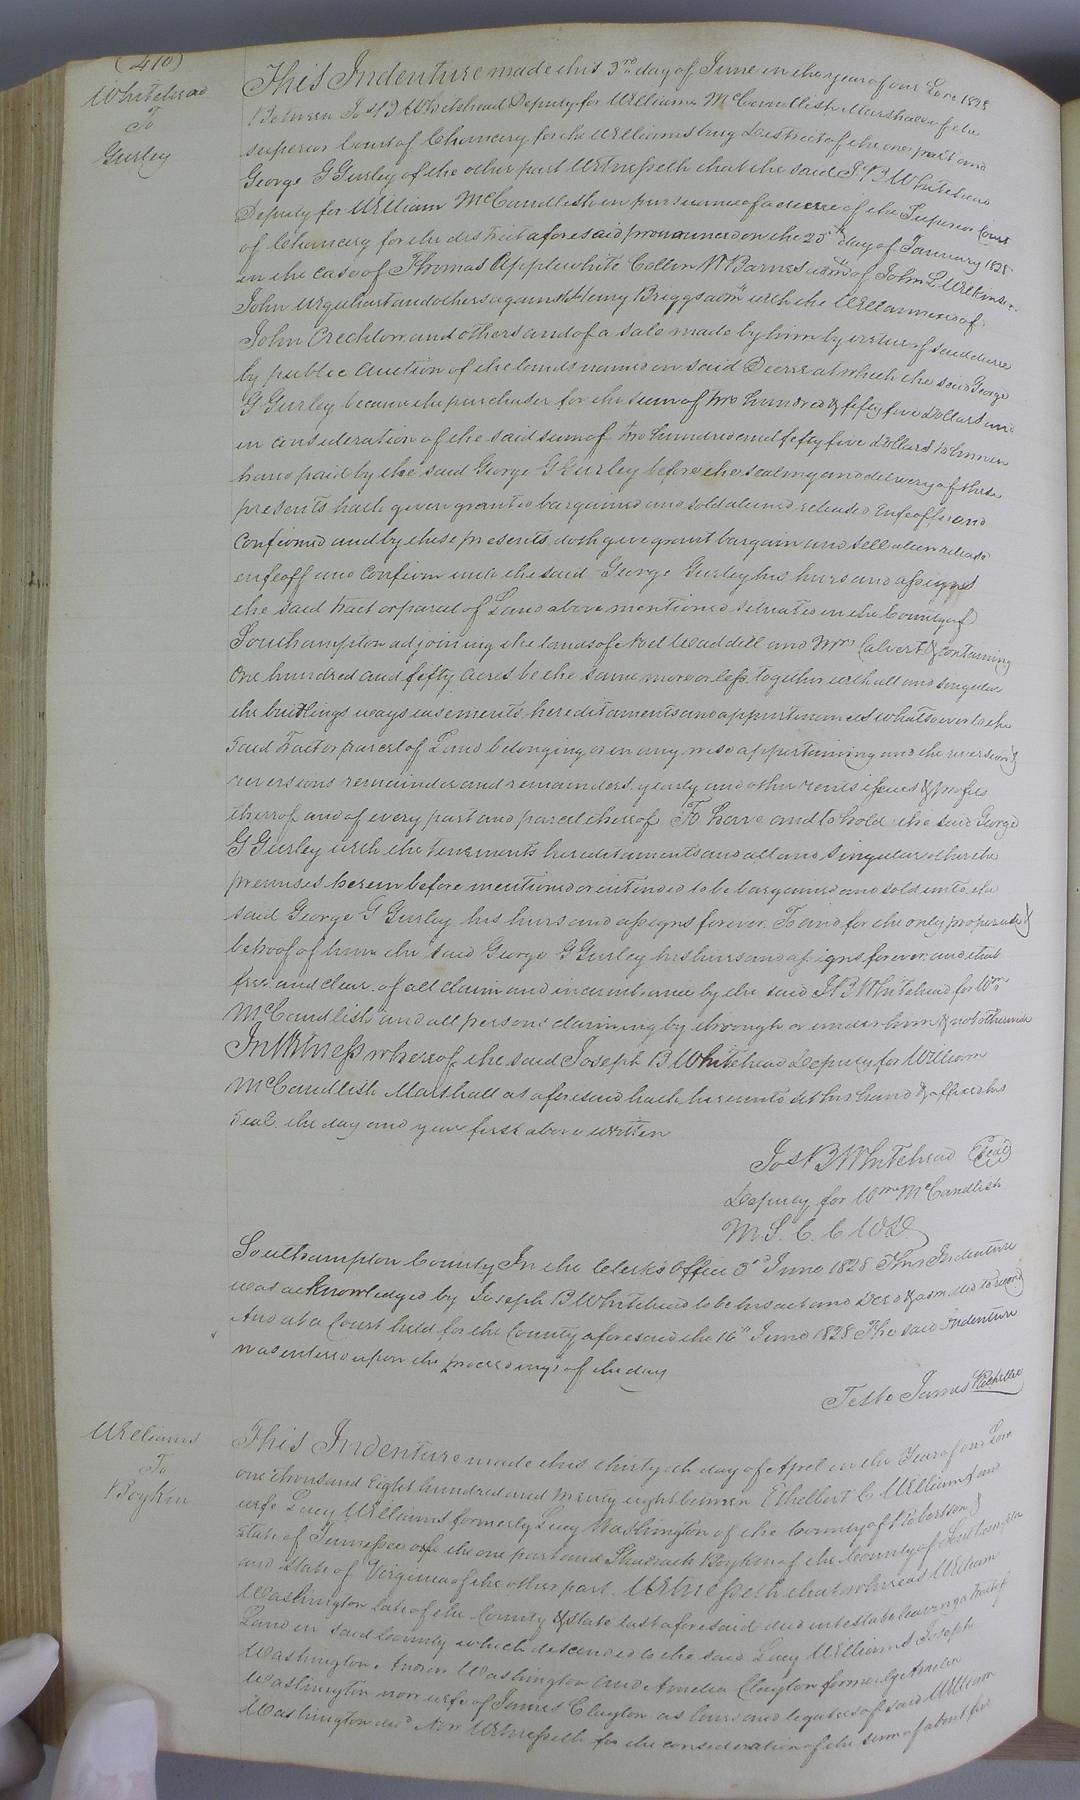 (410)
Whitehead
To
Gurley
This Indenture made this 3rd day of June in the year of our Lord 1828
Between Jos B Whitehead Deputy for William McCandlish Marshall of the
superior Court of Chancery for the Williamsburg District of the one part and
George G Gurley of the other part Witnesseth that the said J B Whitehead
Deputy for William McCandlish in pursuance of a decree of the Superior Court
of Chancery for the district aforesaid pronounced on the 25th day of January 1828
in the case of Thomas Applewhite Collin W Barnes adm of John L Wilkinson
John Urquhart and others against Henry Briggs admr with the Will annexed of
John Crechlow and others and of a sale made by him by virtue of said decree
by public Auction of the lands named in said Decree at which the said George
G Gurley became the purchaser for the sum of two hundred & fifty five Dollars and
in consideration of the said sum of two hundred and fifty five dollars to him in
hand paid by the said George G Gurley before the sealing and delivery of these
presents hath given granted bargained and sold aliened released enfeoffed and
Confirmed and by these presents doth give grant bargain and sell alien release
enfeoff and Confirm unto the said George Gurley his heirs and assigns
the said tract or parcel of Land above mentioned situated in the County of
Southampton adjoining the lands of Noel Waddell and Mrs Calvert & containing
One hundred and fifty acres be the same more or less together with all and singular
the buildings ways easements hereditaments and appurtenances whatsoever to the
said tract or parcel of Land belonging or in any wise appertaining and the reversion &
reversions remainder and remainders yearly and other rents issues & profits
thereof and of every part and parcel thereof To have and to hold the said George
G Gurley with the tenements hereditaments and all and singular other the
premises herein before mentioned or intended to be bargained and sold unto the
said George G Gurley his heirs and assigns forever. To and for the only proper use &
behoof of him the said George G Gurley his heirs and assigns forever and that
free and clear of all claim and incumbrance by the said J B Whitehead for Wm
McCandlish and all persons claiming by through or under him & not otherwise
In Witness whereof the said Joseph B Whitehead Deputy for William
McCandlish Marshall as aforesaid hath hereunto set his hand & affixed his
seal the day and year first above written
Jos B Whitehead Seal
Deputy for Wm McCandlish
M. S. C. C W D
Southampton County In the Clerk's Office 3rd June 1828 This Indenture
was acknowledged by Joseph B Whitehead to be his act and Deed & admitted to record
And at a Court held for the County aforesaid the 16th June 1828 The said Indenture
was entered upon the proceedings of the day
Teste James Rochelle
Williams
To
Boykin
This Indenture made this thirtyeth day of April in the Year of our Lord
one thousand Eight hundred and twenty eight between Ethelbert C Williams and
wife Lucy Williams formerly Lucy Washington of the County of Robertson &
State of Tennessee of the one part and Shadrach Boykin of the County of Southampton
and State of Virginia of the other part. Witnesseth that whereas William
Washington late of the County & State last aforesaid died intestate leaving a tract of
Land in said County which descended to the said Lucy Williams Joseph
Washington, Andrew Washington and Amelia Clayton formerly Amelia
Washington now wife of James Clayton as heirs and legatees of said William
Washington decd Now Witnesseth for the consideration of the sum of about five